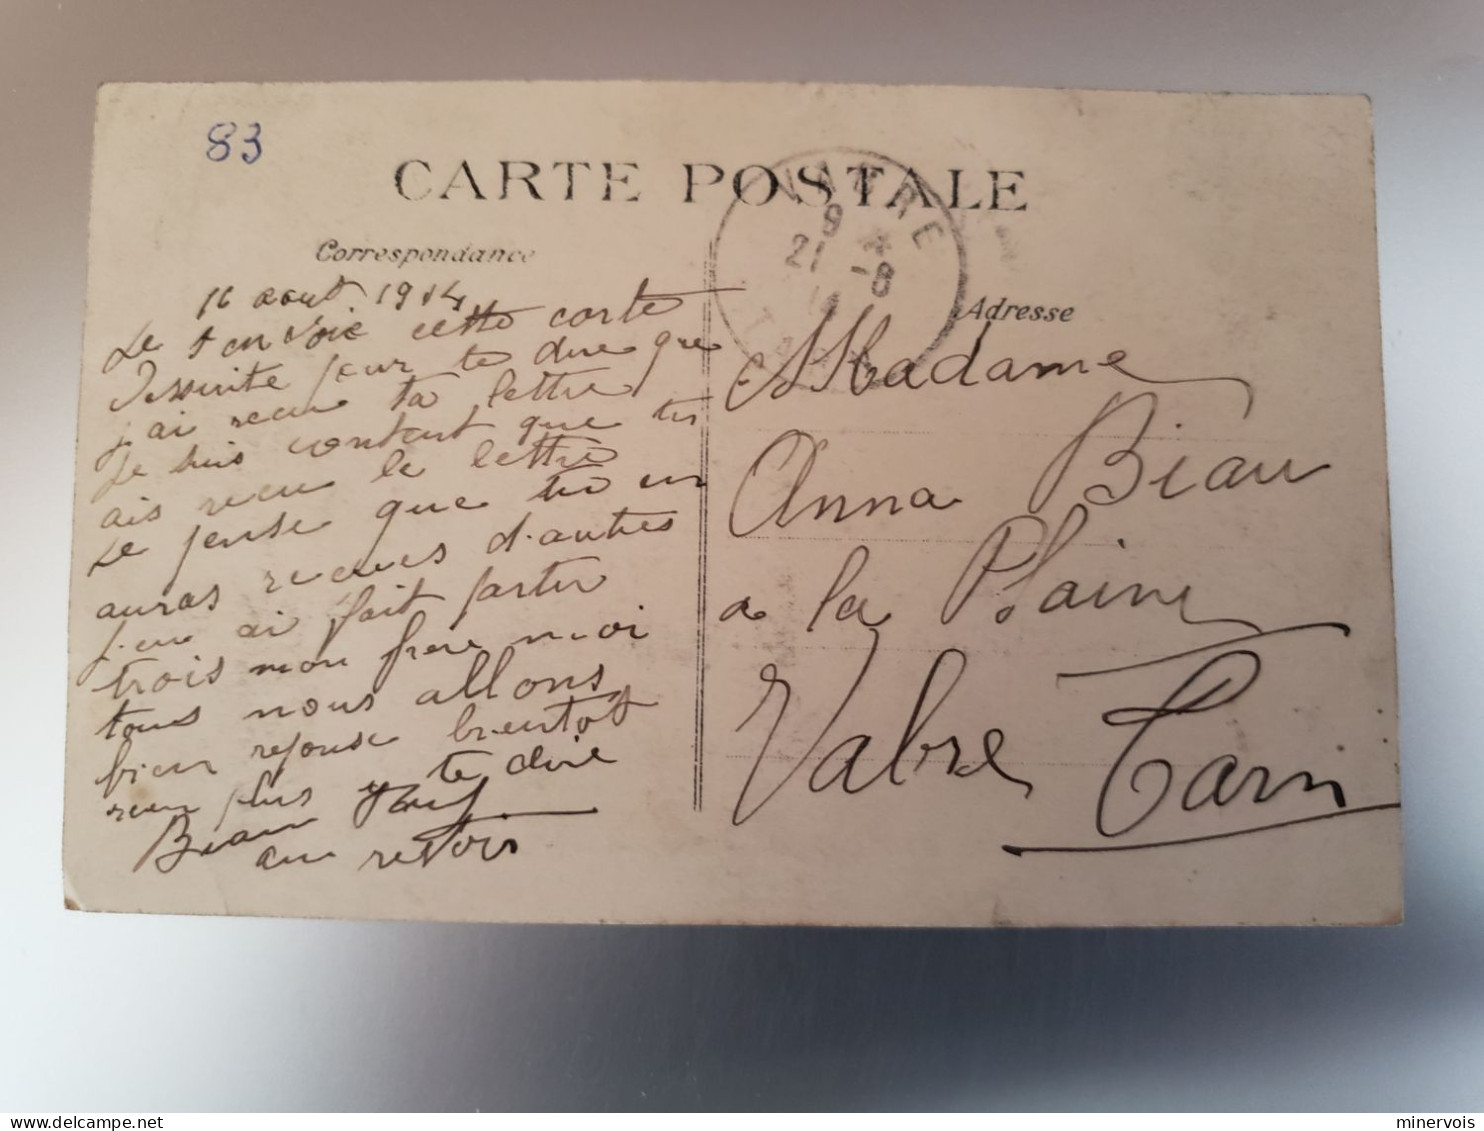 83
CARTE POSTALE
VABRE
9
21 - 8
14
TARN
Correspondance
16 aout 1914
Je t'envoie cette carte
pour te dire que
j'ai recu ta lettre
Je suis content que tu
ais recu le lettre
Je pense que tu en
auras recues d'autres
j'en ai fait partir
trois mon frere moi
tous nous allons
bien reponse bientot
rien plus te dire
Biau
au revoir
Adresse
Madame
Anna Biau
a la Plaine
Vabre Tarn
minervois